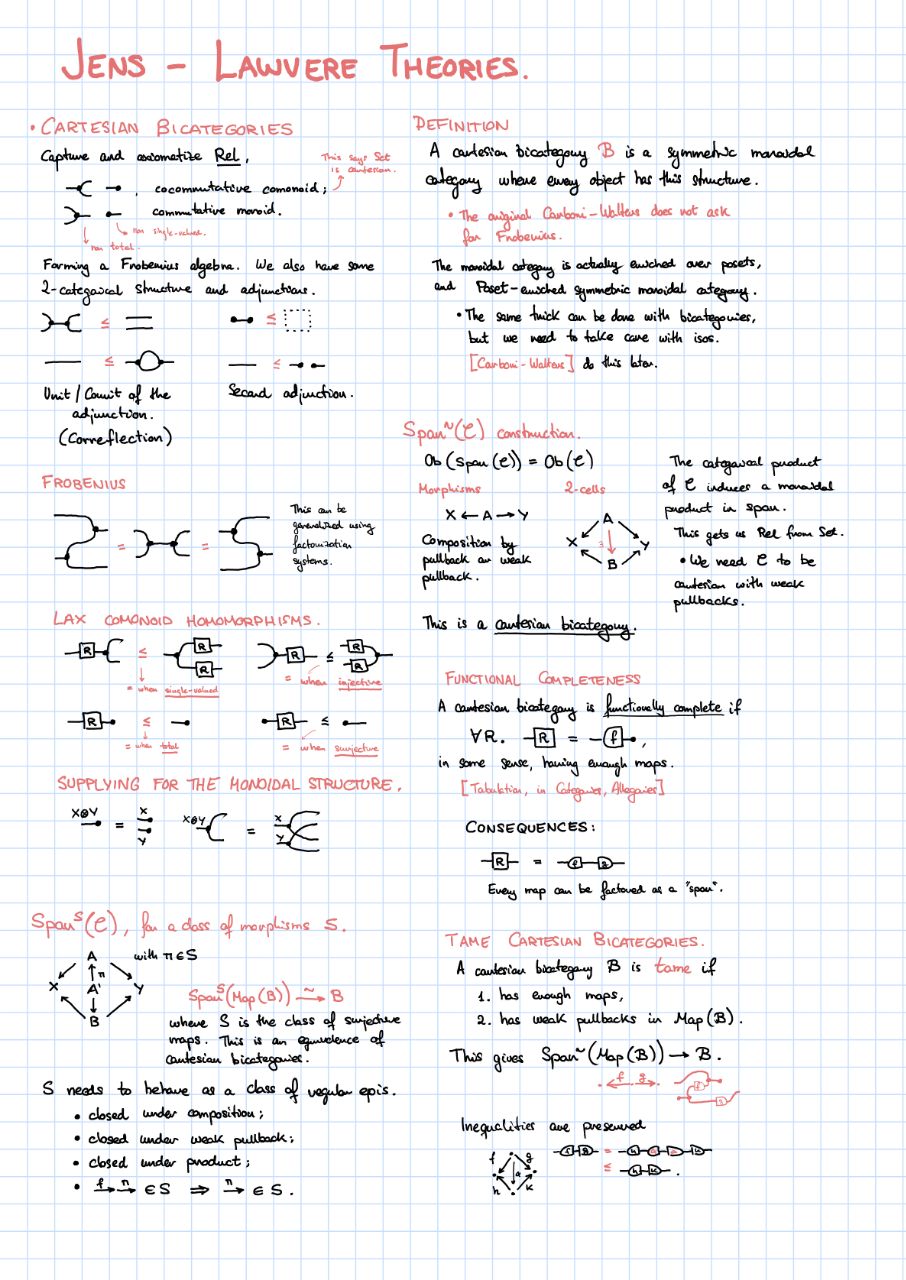 JENS - LAWVERE THEORIES.
• CARTESIAN BICATEGORIES
Capture and axiomatize Rel,
This says Set
is cartesian.
, cocommutative comonoid;
commutative monoid.
non single-valued.
non total.
Forming a Frobenius algebra. We also have some
2-categorical structure and adjunctions.
≤
≤
≤
≤
Unit / Counit of the
adjunction.
(Correflection)
Second adjunction.
FROBENIUS
= =
This can be
generalized using
factorization
systems.
LAX COMONOID HOMOMORPHISMS.
R ≤ R R
= when single-valued
R ≤ R R
= when injective
R ≤
= when total
R ≤
= when surjective
SUPPLYING FOR THE MONOIDAL STRUCTURE.
X⊗Y = X Y
X⊗Y = X Y
Spanˢ(C), for a class of morphisms S.
A
with π∈S
π
X A' Y
B
Spanˢ(Map(B)) ⥲ B
where S is the class of surjective
maps. This is an equivalence of
cartesian bicategories.
S needs to behave as a class of regular epis.
• closed under composition;
• closed under weak pullback;
• closed under product;
• f→ π→ ∈ S ⇒ π→ ∈ S.
DEFINITION
A cartesian bicategory B is a symmetric monoidal
category where every object has this structure.
• The original Carboni-Walters does not ask
for Frobenius.
The monoidal category is actually enriched over posets,
and Poset-enriched symmetric monoidal category.
• The same trick can be done with bicategories,
but we need to take care with isos.
[Carboni-Walters] do this later.
Span~(C) construction.
Ob(Span(C)) = Ob(C)
Morphisms
2-cells
X ← A → Y
A
X ∃ Y
B
Composition by
pullback or weak
pullback.
The categorical product
of C induces a monoidal
product in span.
This gets us Rel from Set.
• We need C to be
cartesian with weak
pullbacks.
This is a cartesian bicategory.
FUNCTIONAL COMPLETENESS
A cartesian bicategory is functionally complete if
∀R. R = f ,
in some sense, having enough maps.
[Tabulation, in Categories, Allegories]
CONSEQUENCES:
R = f g
Every map can be factored as a "span".
TAME CARTESIAN BICATEGORIES.
A cartesian bicategory B is tame if
1. has enough maps,
2. has weak pullbacks in Map(B).
This gives Span~(Map(B)) → B.
f g
f
g
Inequalities are preserved
f g
α
h k
f g = h α α k
≤ h k .